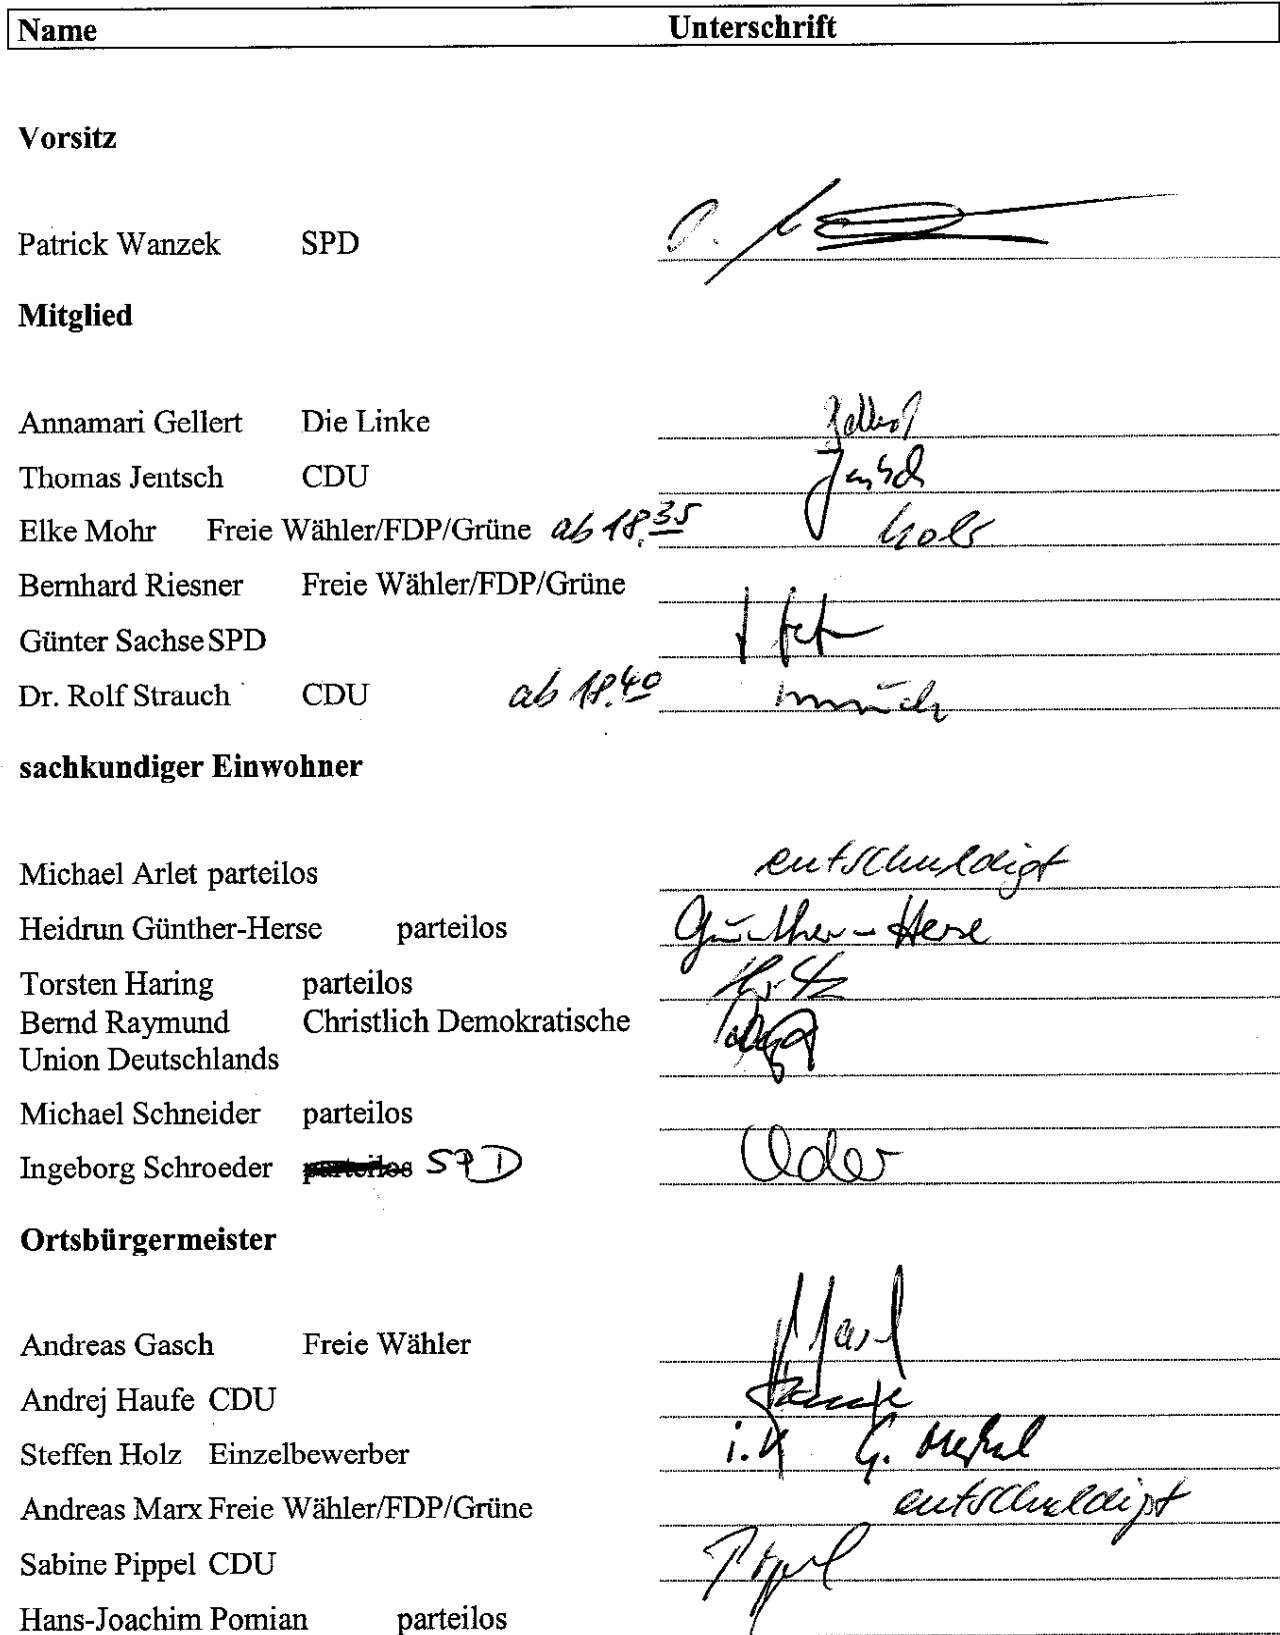 Name Unterschrift
Vorsitz
Patrick Wanzek SPD
Mitglied
Annamari Gellert Die Linke Gellert
Thomas Jentsch CDU Jentsch
Elke Mohr Freie Wähler/FDP/Grüne ab 18.35 Mohr
Bernhard Riesner Freie Wähler/FDP/Grüne
Günter Sachse SPD
Dr. Rolf Strauch CDU ab 18.40
sachkundiger Einwohner
Michael Arlet parteilos entschuldigt
Heidrun Günther-Herse parteilos Günther-Herse
Torsten Haring parteilos
Bernd Raymund Christlich Demokratische
Union Deutschlands
Michael Schneider parteilos
Ingeborg Schroeder parteilos SPD
Ortsbürgermeister
Andreas Gasch Freie Wähler
Andrej Haufe CDU Haufe
Steffen Holz Einzelbewerber i.V. G.
Andreas Marx Freie Wähler/FDP/Grüne entschuldigt
Sabine Pippel CDU Pippel
Hans-Joachim Pomian parteilos